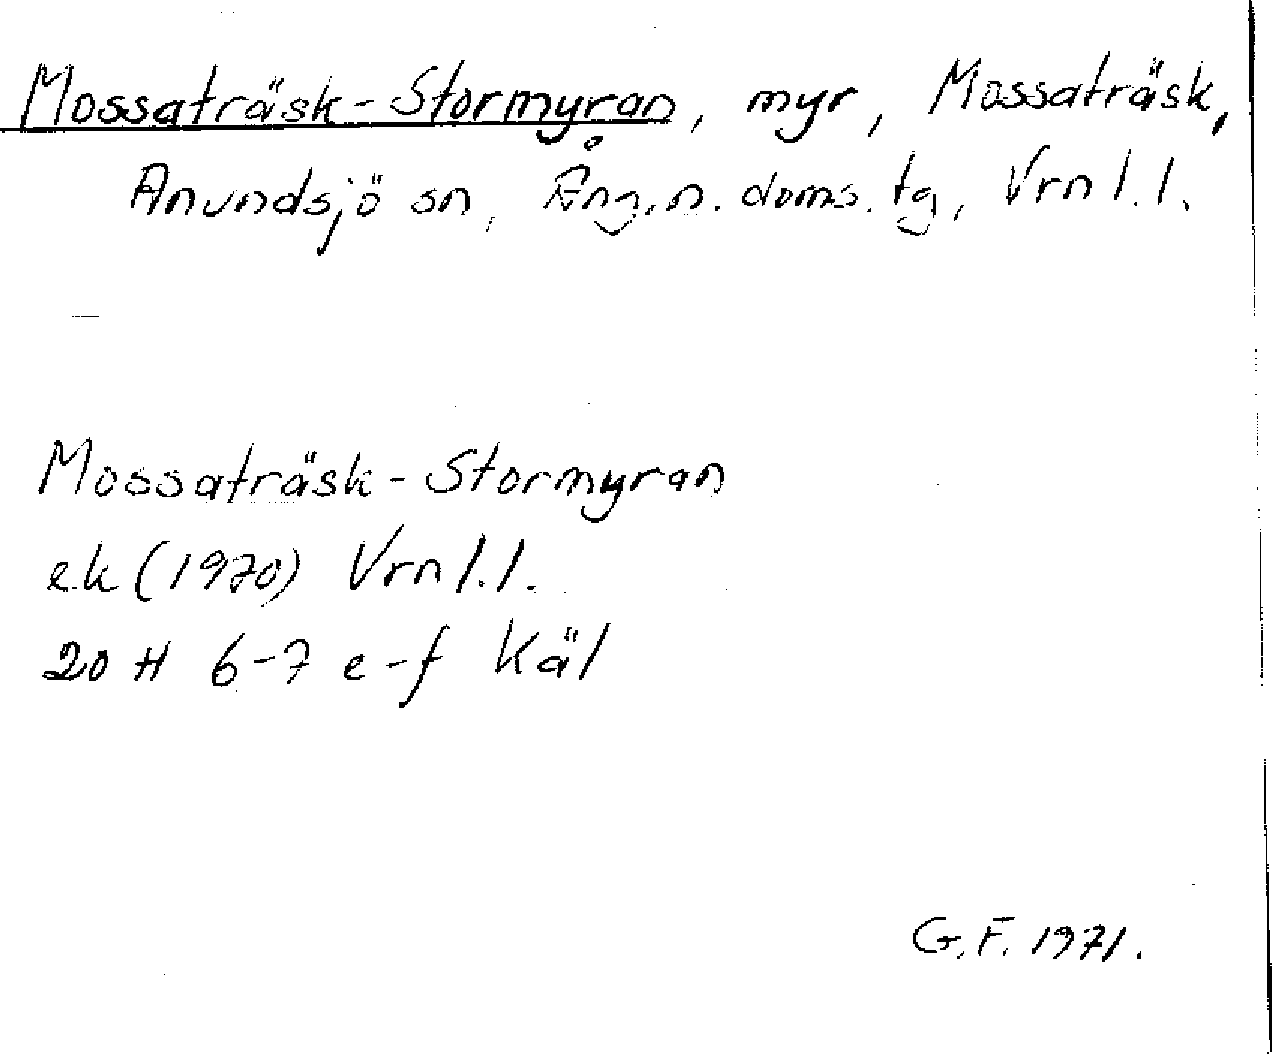 Mossaträsk-Stormyran, myr, Mossaträsk,
Anundsjö sn, Ång.n. doms. tg, Vrn l.l.
Mossaträsk-Stormyran
ek (1970) Vrn l.l.
20 H 6-7 e-f Käl
G.F. 1971.